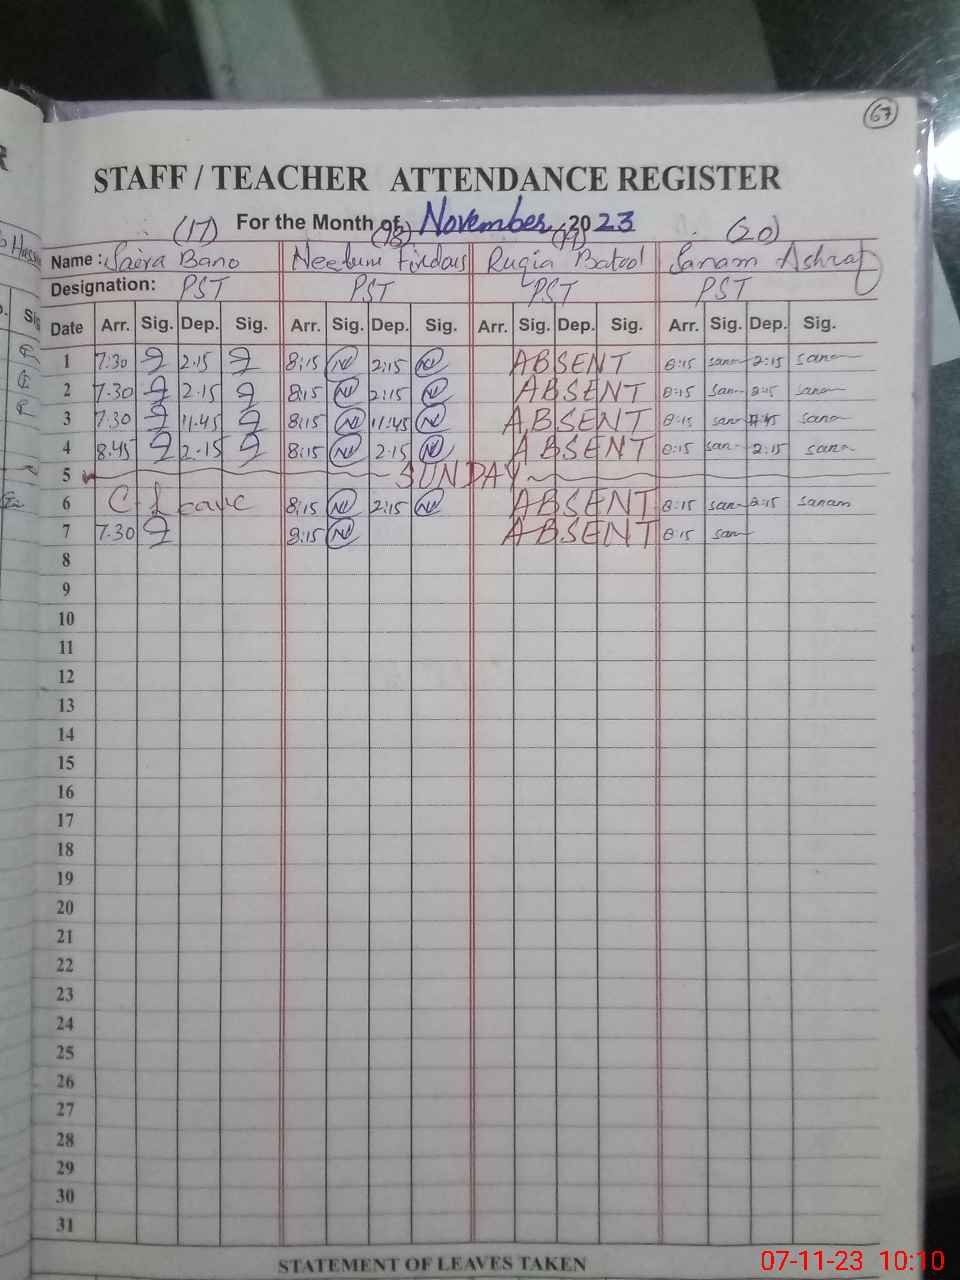 67
STAFF / TEACHER ATTENDANCE REGISTER
For the Month of November 2023
(17) (18) (19) (20)
Name: Saira Bano Firdous Ruqia Batool Sanam Ashraf
Designation: PST PST PST PST
Date Arr. Sig. Dep. Sig. Arr. Sig. Dep. Sig. Arr. Sig. Dep. Sig. Arr. Sig. Dep. Sig.
1 7.30 2.15 8:15 2:15 ABSENT 8:15 sanam 2:15 sanam
2 7.30 2.15 8:15 2:15 ABSENT 8:15 sanam 2:15 sanam
3 7.30 11.45 8:15 11:45 ABSENT 8:15 sanam sanam
4 8.45 2.15 8:15 2.15 ABSENT 8:15 sanam 2:15 sanam
5 SUNDAY
6 C. Leave 8:15 2:15 ABSENT 8:15 sanam 2:15 sanam
7 7.30 8:15 ABSENT 8:15 sanam
8
9
10
11
12
13
14
15
16
17
18
19
20
21
22
23
24
25
26
27
28
29
30
31
STATEMENT OF LEAVES TAKEN
07-11-23 10:10